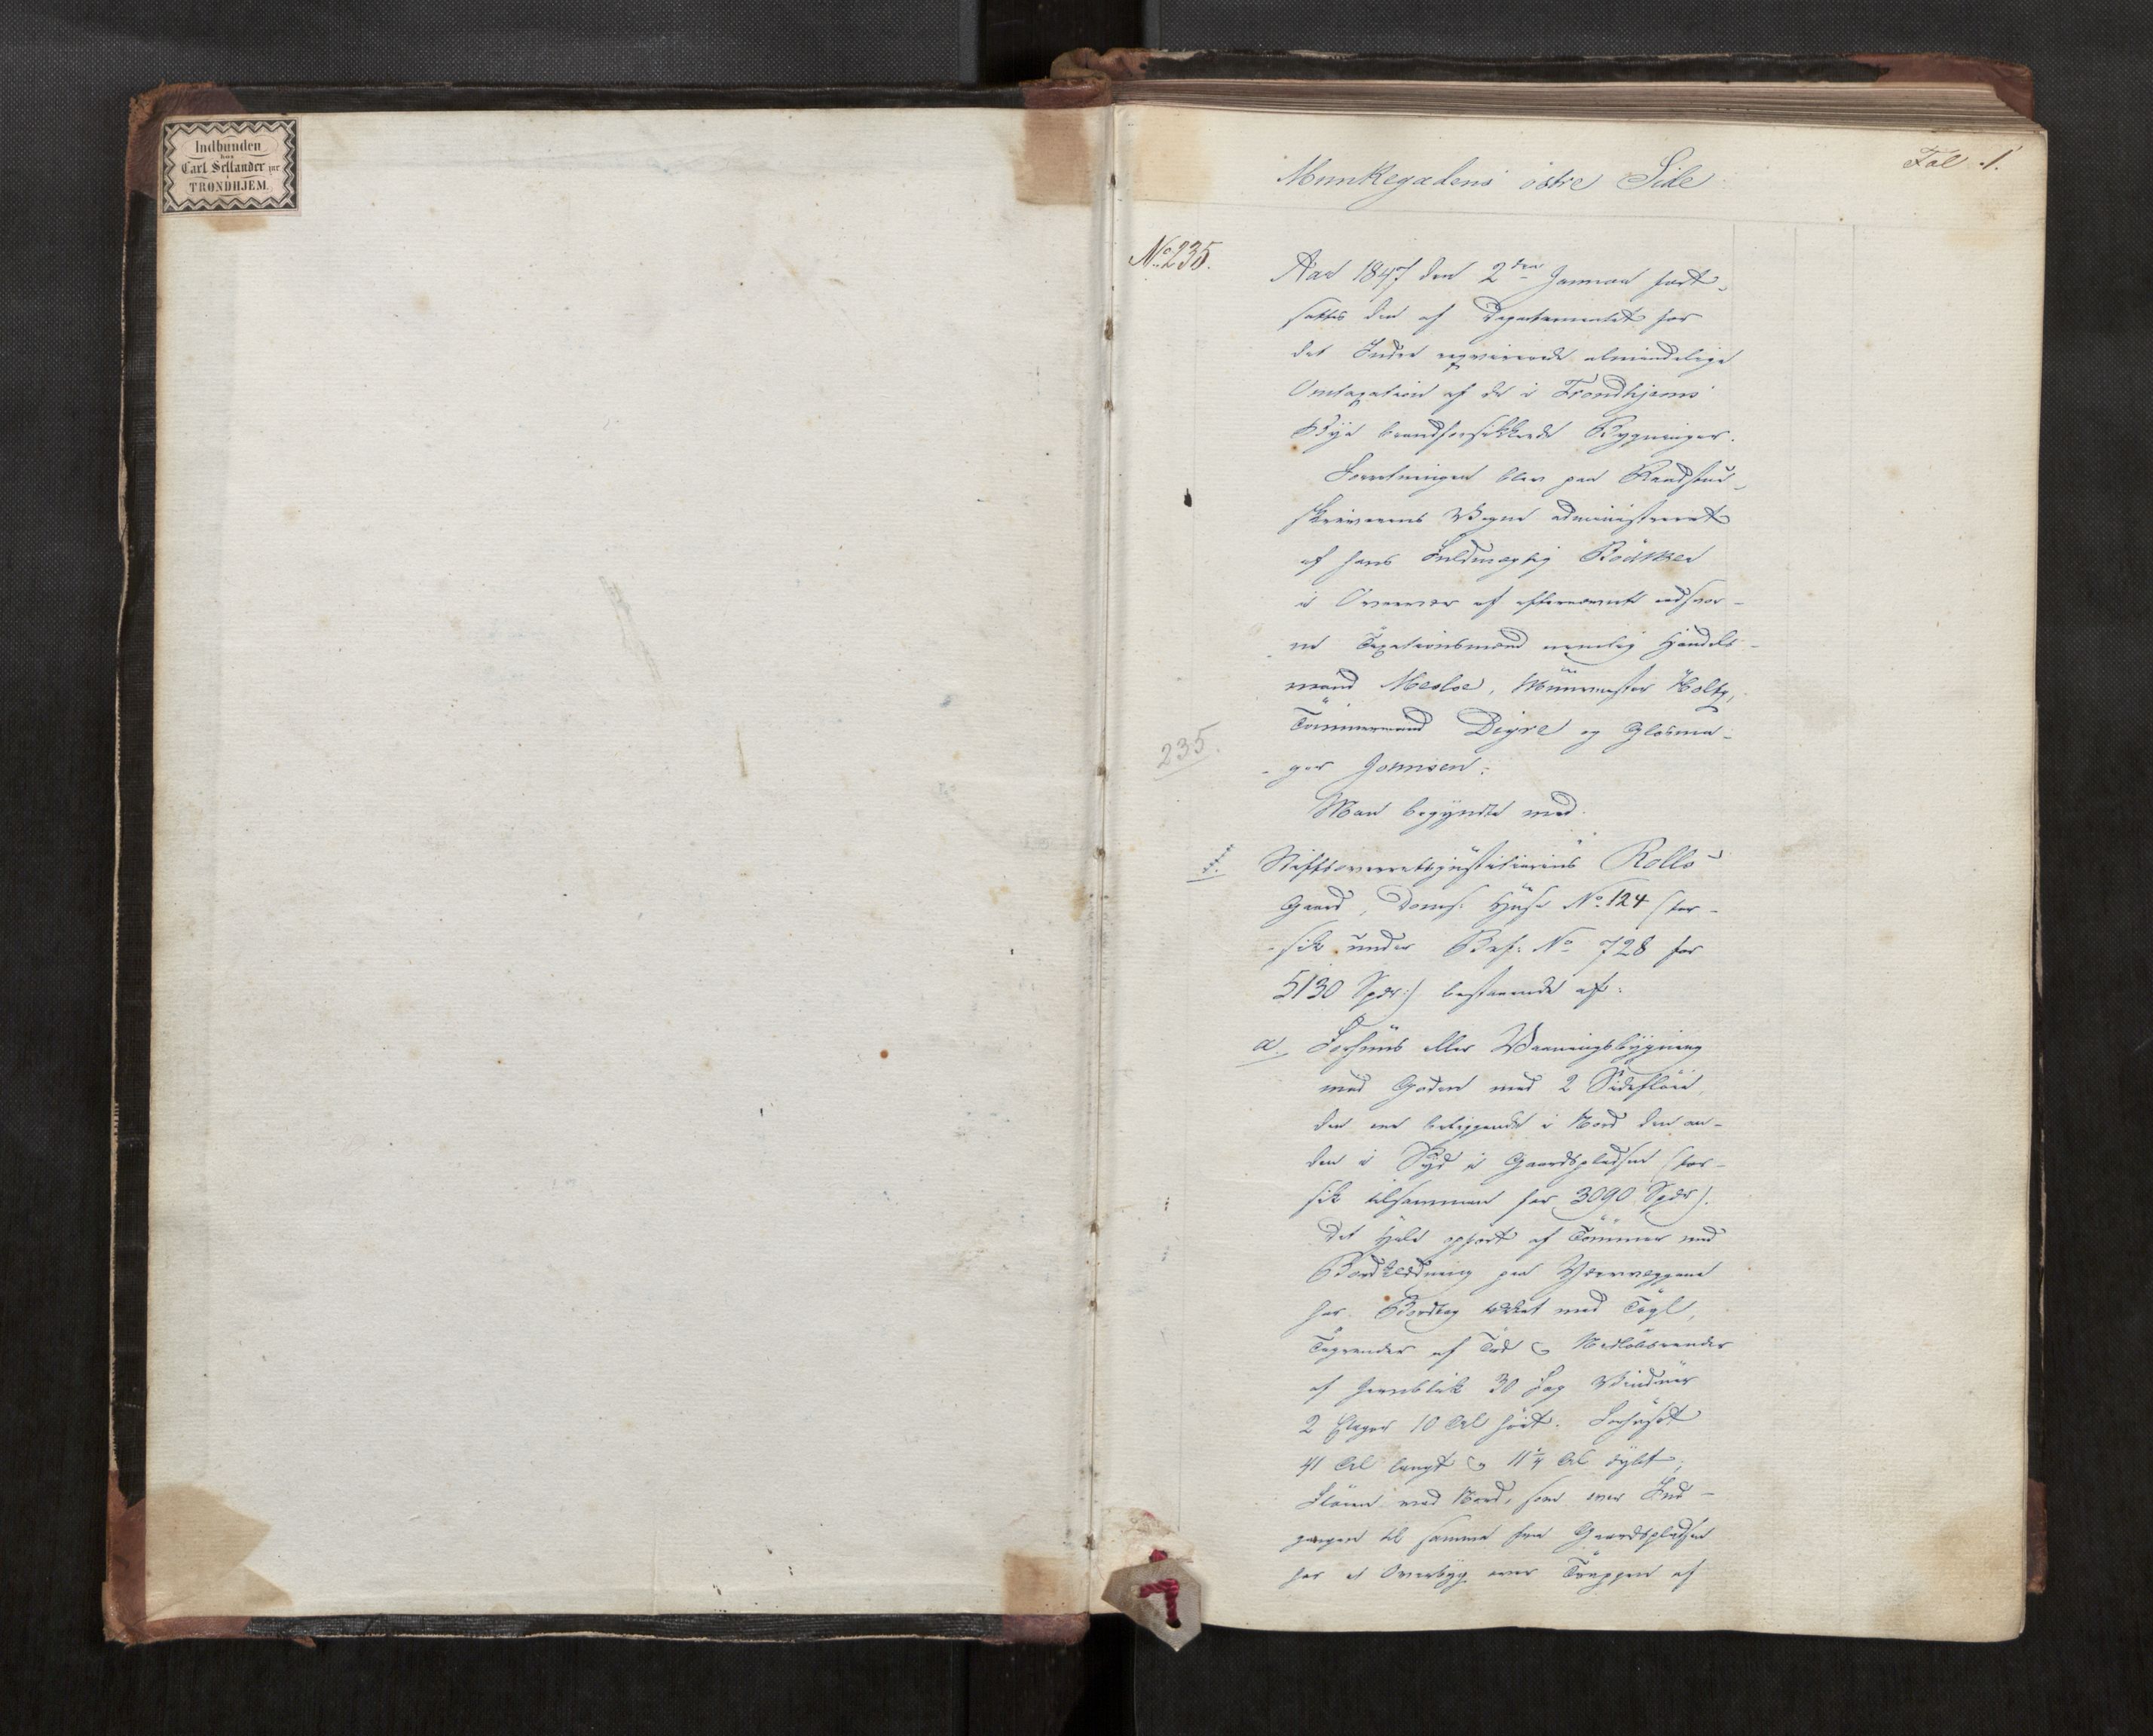 Indbunden
hos
Carl Sellander jur
i
TRONDHJEM.
Fol 1.
Munkegadens östre Side
No 235.
Aar 1847 den 2den Januar fort-
sattes den af Departementet for
det Indre reqvirerede almindelige
Omtaxation af de i Trondhjems
Bye brandforsikkrede Bygninger.
Forretningen blev paa Raadstue-
skriverens Vegne administreret
af hans Fuldmægtig
i Overvær af efternævnte edsvor-
ne Taxationsmænd nemlig Handels-
mand Mesloe, Muurmester Holtz,
Tömmermand Digre og Glasma-
ger Jonnsen.
235.
Man begyndte med
1. Stiftsoverretsjustitiarius Rolls
Gaard, Huse No 124 (for-
sik under No 728 for
5130 Spdr:) bestaaende af:
a. Forhuus eller Vaaningsbygning
mod Gaden med 2 Sidefløie,
den ene beliggende i Nord den an-
den i Syd i Gaardspladsen (for-
sik tilsammen for 3090 Spdr).
Det Hele opført af Tömmer med
Bordklædning paa Ydervæggene
har Bordtag tækket med Tegl,
Tagrender af Træ og Nedløbsrender
af Jernblik 30 Fag Vinduer
2 Etager 10 Al høit. Forhuset
41 Al langt og 11 1/4 Al dybt;
Fløien mod Nord, som over Ind-
gangen til samme fra Gaardspladsen
har et Overbyg over Trappen af